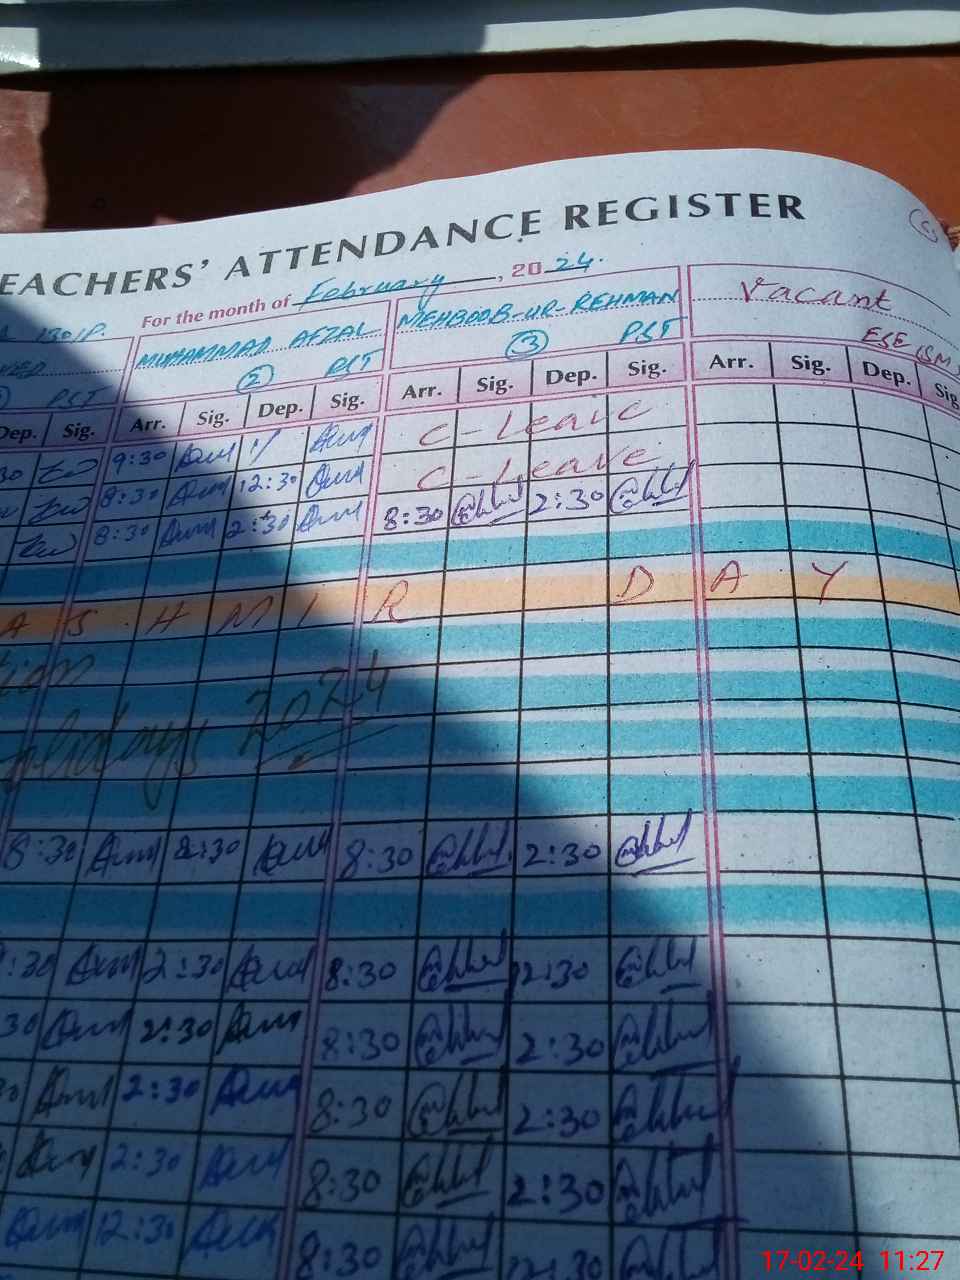 EACHERS' ATTENDANCE REGISTER
For the month of February, 2024.
1301P.
MUHAMMAD AFZAL
MEHBOOB-UR-REHMAN
Vacant
PST
② PST
③ PST
ESE (SM
Dep. Sig. Arr. Sig. Dep. Sig. Arr. Sig. Dep. Sig. Arr. Sig. Dep. Sig
30 9:30 1/ C-Leave
8:30 12:30 C-Leave
8:30 2:30 8:30 2:30
A S H M I R D A Y
tion
olidays 2024
8:30 2:30 8:30 2:30
:30 2:30 8:30 2:30
30 2:30 8:30 2:30
30 2:30 8:30 2:30
2:30 8:30 2:30
12:30 8:30 2:30
17-02-24 11:27